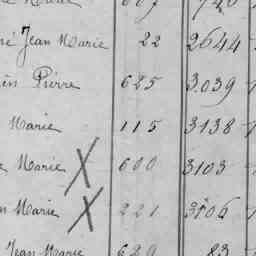 Jean Marie 22 2644
Pierre 625 3.039
Marie 115 3138
Marie X 600 3103
Marie X 221 3706
Jean Marie 629 83